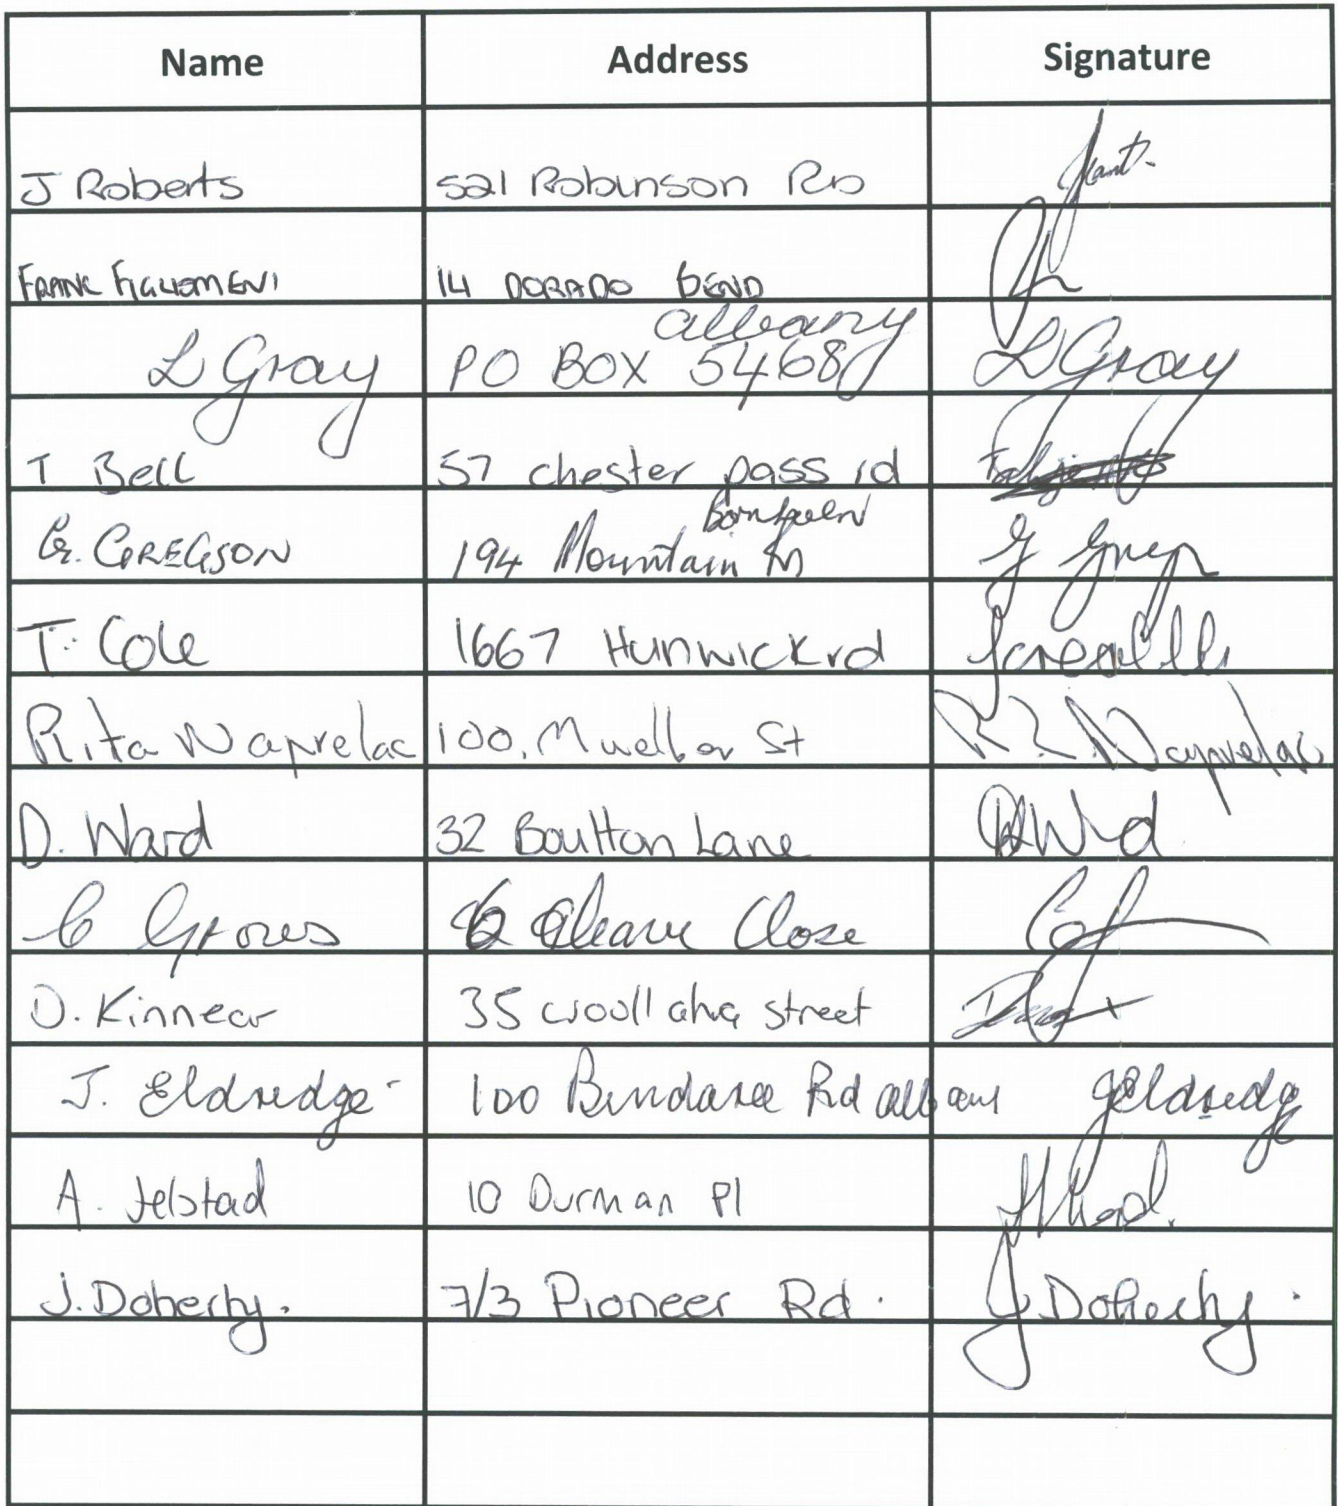 Name Address Signature
J Roberts 521 Robinson RD
FRANK FIGLIOMENI 14 DORADO BEND
albany
L Gray PO BOX 5468 L Gray
T Bell 57 chester pass rd
Bornholm
G. GREGSON 194 Mountain Rd G Greg
T. Cole 1667 Hunwick rd
Rita Naprelac 100, Mueller St R Naprelac
D. Ward 32 Boulton Lane DWd
C Groves 6 Cleave Close
D. Kinnear 35 woollahra street
J. Eldredge 100 Bindaree Rd albany JEldredge
A. Jelstad 10 Durman Pl
J. Doherty. 7/3 Pioneer Rd. J Doherty.